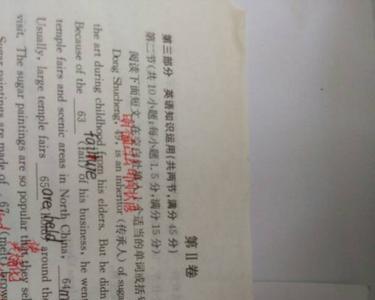 第Ⅱ卷
第三部分 英语知识运用(共两节,满分 45 分)
第二节(共 10 小题;每小题 1. 5 分,满分 15 分)
阅读下面短文,在空白处填入 适当的单词或括号
Dong Shucheng, 49, is an inheritor (传承人) of sugar
the art during childhood from his elders. But he didn
Because of the 63 (fail) of his business, he went
failure
temple fairs and scenic areas in North China, 64
Usually, large temple fairs 65 around the
are held
visit. The sugar paintings are so popular that they sel
Sugar paintings are made of 67 (melt) brown